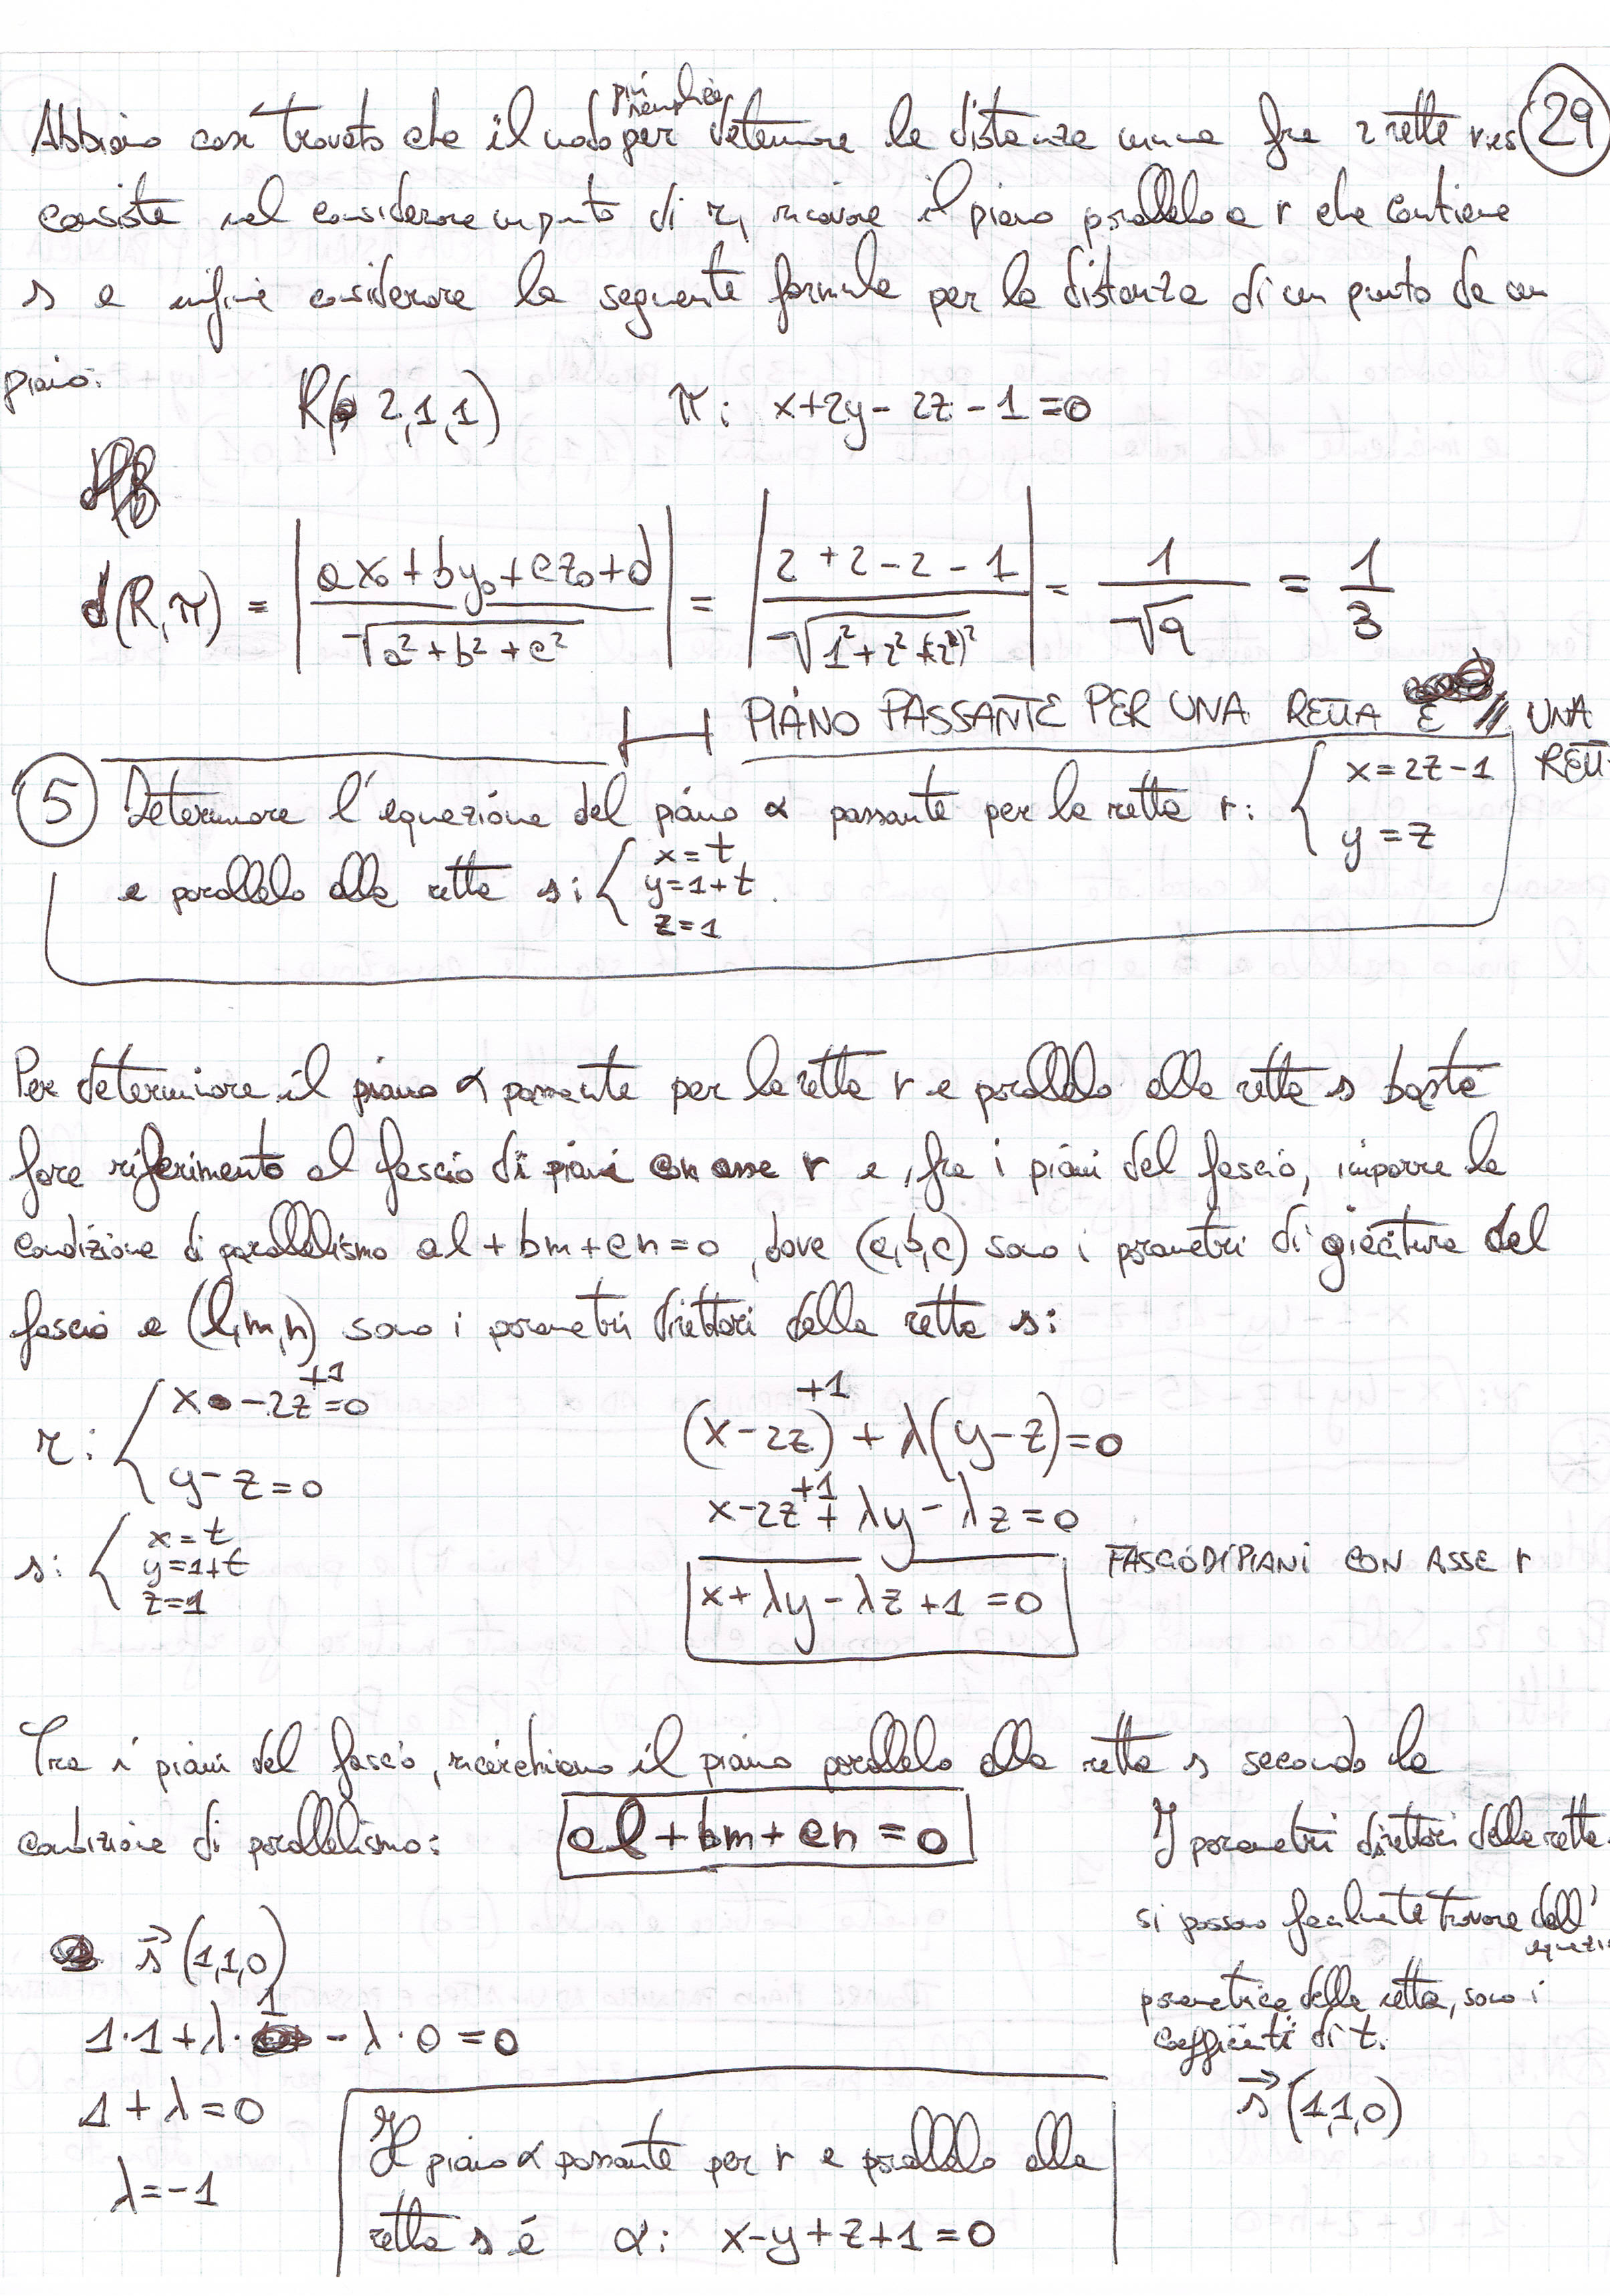 Abbiamo così trovato che il modo più semplice per determinare la distanza minima fra 2 rette r e s (29)
consiste nel considerare un punto di r, ricavare il piano parallelo a r che contiene
s e infine considerare la seguente formula per la distanza di un punto da un
piano:
R(2,1,1) π: x+2y-2z-1=0
d(R,π) = |ax₀+by₀+cz₀+d / √a²+b²+c²| = |2+2-2-1 / √1²+2²+(-2)²| = 1/√9 = 1/3
PIANO PASSANTE PER UNA RETTA E // UNA
5 Determinare l'equazione del piano α passante per la retta r: { x=2z-1
y=z
e parallelo alla retta s: { x=t
y=1+t
z=1
Per determinare il piano α passante per la retta r e parallelo alla retta s basta
fare riferimento al fascio di piani con asse r e, fra i piani del fascio, imporre la
condizione di parallelismo al+bm+cn=0, dove (a,b,c) sono i parametri di giacitura del
fascio e (l,m,n) sono i parametri direttori della retta s:
r: { x-2z+1=0
y-z=0
(x-2z+1)+λ(y-z)=0
x-2z+1+λy-λz=0
s: { x=t
y=1+t
z=1
x+λy-λz+1=0 FASCIO DI PIANI CON ASSE r
Tra i piani del fascio, ricerchiamo il piano parallelo alla retta s secondo la
condizione di parallelismo: al+bm+cn=0
I parametri direttori della retta
si possono facilmente trovare dall'
parametrica della retta, sono i
coefficienti di t.
s⃗(1,1,0)
s⃗(1,1,0)
1·1+λ·1-λ·0=0
1+λ=0
λ=-1
Il piano α passante per r e parallelo alla
retta s é α: x-y+z+1=0